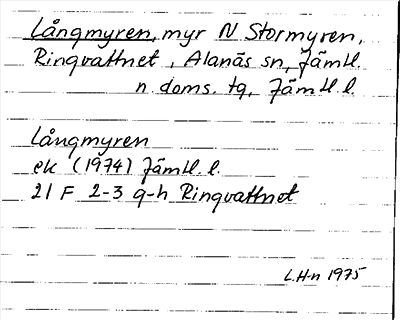 Långmyren, myr N Stormyren,
Ringvattnet, Alanäs sn, Jämtl.
n. doms. tg, Jämtl l.
Långmyren
ek (1974) Jämtl. l.
21 F 2-3 g-h Ringvattnet
L.H-n 1975